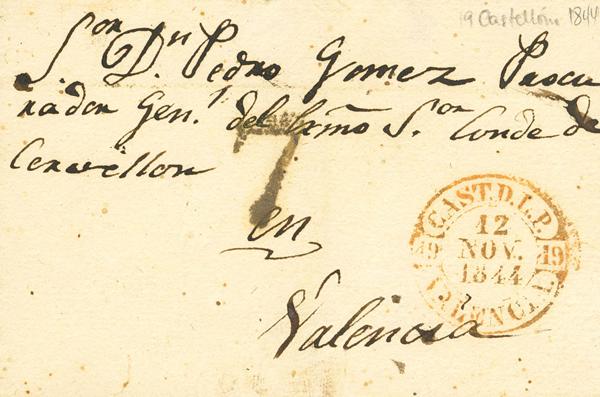 19 Castellón 1844
S.or D.n Pedro Gomez Procu
rador Gen.l del Exmo S.or Conde de
Cervellon
7
en
Valencia
CAST. D. L. P.
12
NOV.
1844
19 19
VALENCIA